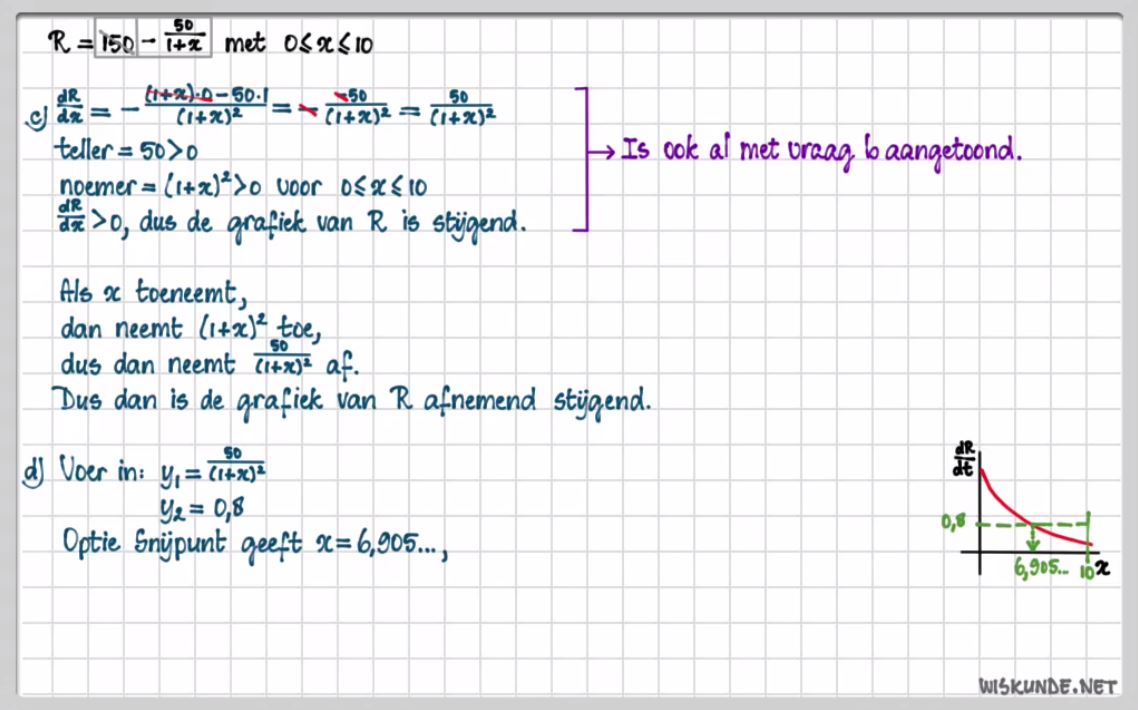 R = 150 - 50/(1+x) met 0 ≤ x ≤ 10
c) dR/dx = - ((1+x)·0 - 50·1)/(1+x)² = - -50/(1+x)² = 50/(1+x)²
teller = 50 > 0
→ Is ook al met vraag b aangetoond.
noemer = (1+x)² > 0 voor 0 ≤ x ≤ 10
dR/dx > 0, dus de grafiek van R is stijgend.
Als x toeneemt,
dan neemt (1+x)² toe,
dus dan neemt 50/(1+x)² af.
Dus dan is de grafiek van R afnemend stijgend.
d) Voer in: y₁ = 50/(1+x)²
y₂ = 0,8
Optie Snijpunt geeft x = 6,905...,
dR/dt
0,8
6,905... 10 x
WISKUNDE.NET